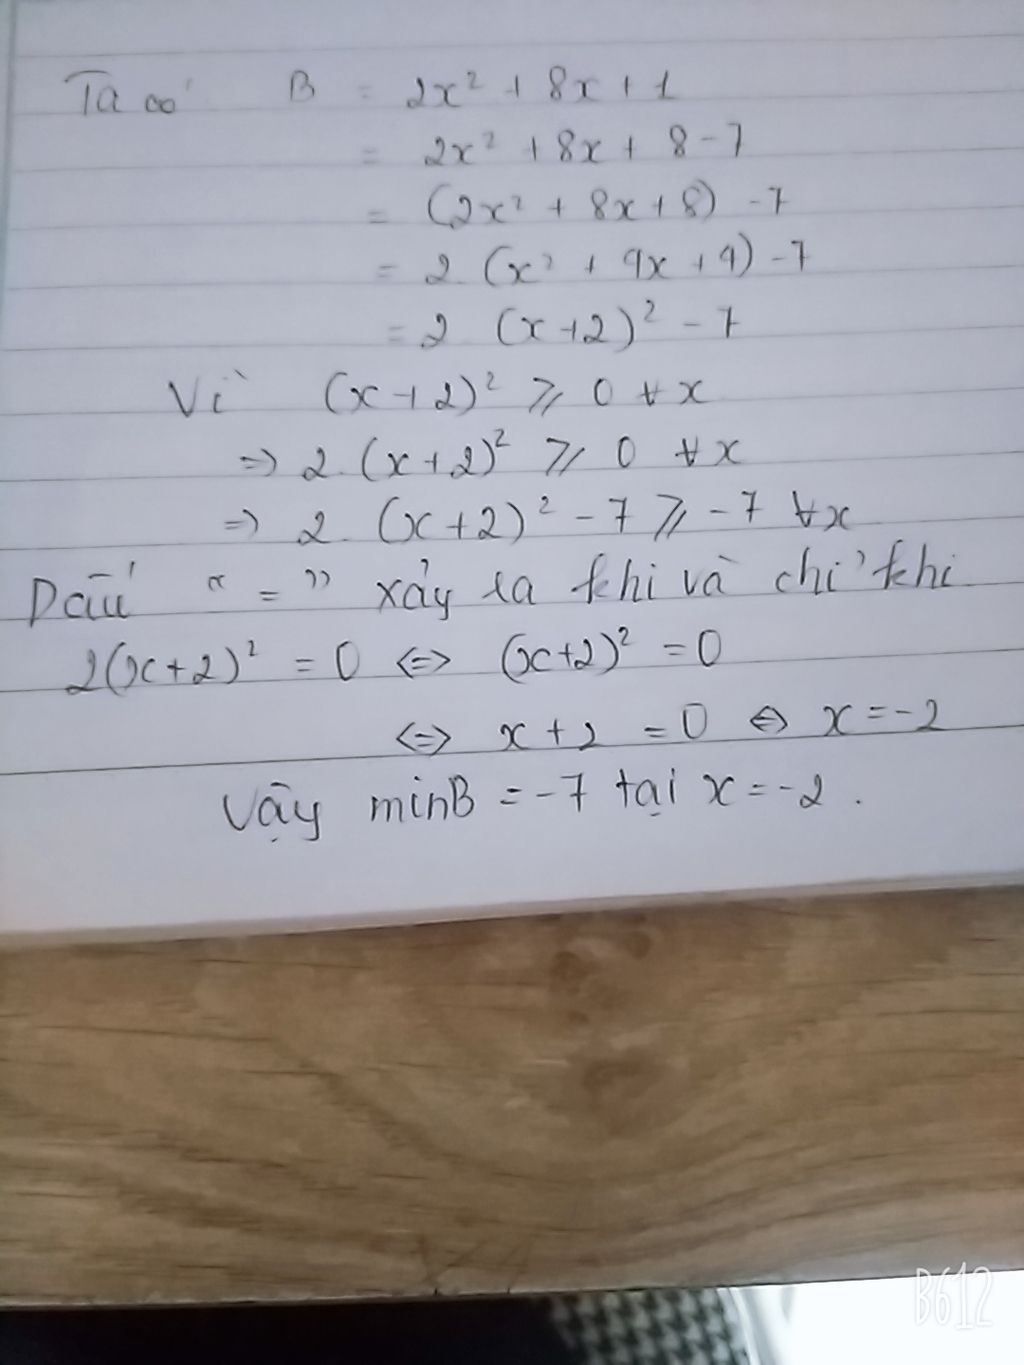 Ta có B = 2x² + 8x + 1
= 2x² + 8x + 8 - 7
= (2x² + 8x + 8) - 7
= 2. (x² + 4x + 4) - 7
= 2. (x + 2)² - 7
Vì (x + 2)² ⩾ 0 ∀ x
=> 2. (x + 2)² ⩾ 0 ∀ x
=> 2. (x + 2)² - 7 ⩾ - 7 ∀x
Dấu " = " xảy ra khi và chỉ khi
2(x + 2)² = 0 <=> (x + 2)² = 0
<=> x + 2 = 0 <=> x = -2
Vậy minB = -7 tại x = -2 .
B612